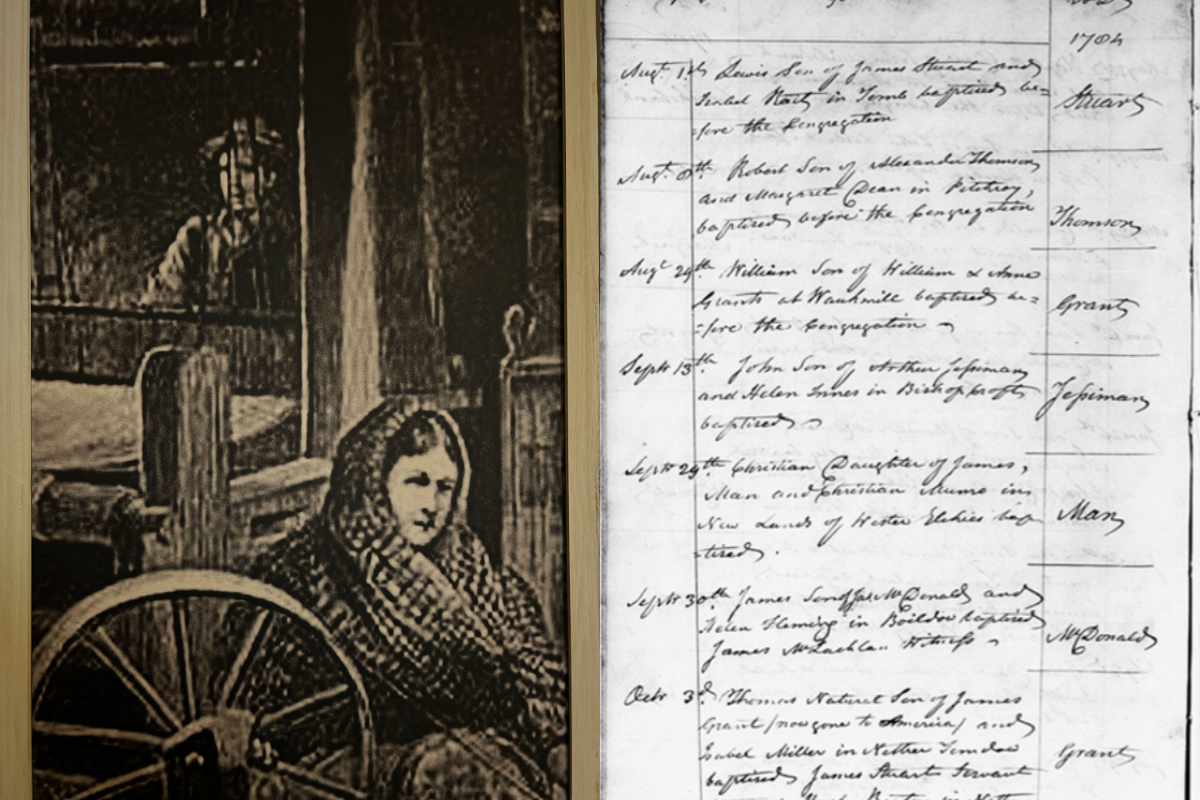 1784
Augt. 1st Lewis Son of James Stuart and
Isobel in Tomb baptized be=
=fore the Congregation
Stuart
Augt. 8th Robert Son of Alexander Thomson
and Margaret Dean in Pitcroy,
baptized before the Congregation
Thomson
Augt 29th William Son of William & Anne
Grants at Waukmill baptized be=
=fore the Congregation
Grant
Septr 13th John Son of Arthur Jessiman
and Helen Innes in Bishop Croft
baptized
Jessiman
Septr 29th Christian Daughter of James,
Man and Christian Munro in
New Lands of Wester Elchies bap
tized.
Man
Septr 30th James Son of Jas McDonald and
Helen Fleming in Boildow baptized
James McLachlan Witness
McDonald
Octr 3d Thomas Natural Son of James
Grant (now gone to America) and
Isabel Miller in Nether Tomdow
baptized James Stuart Servant
Grant